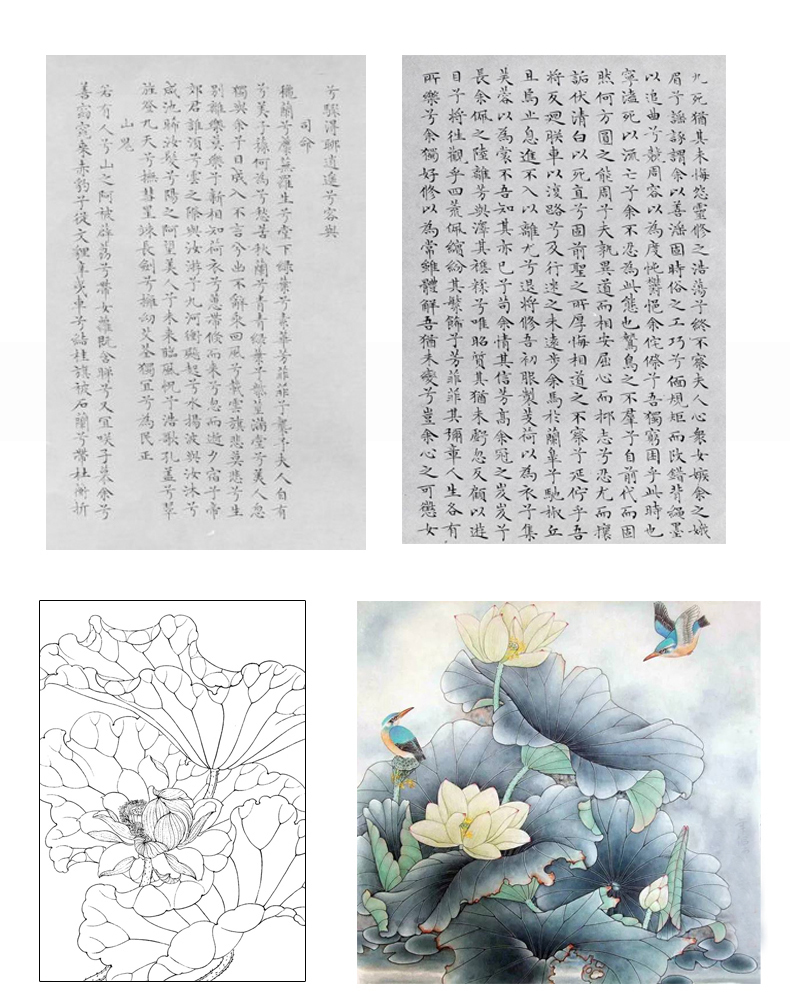 九死猶其未悔怨靈修之浩蕩兮終不察夫人心衆女嫉余之娥
眉兮謡諑謂余以善淫固時俗之工巧兮偭規矩而改錯背繩墨
以追曲兮競周容以為度忳鬱悒余侘傺兮吾獨窮困乎此時也
寧溘死以流亡兮余不忍為此態也鷙鳥之不羣兮自前代而固
然何方圓之能周兮夫孰異道而相安屈心而抑志兮忍尤而攘
詬伏清白以死直兮固前聖之所厚悔相道之不察兮延佇乎吾
將反廻朕車以復路兮及行迷之未遠步余馬於蘭臯兮馳椒丘
且焉止息進不入以離尤兮退將修吾初服製芰荷以為衣兮集
芙蓉以為裳不吾知其亦已兮苟余情其信芳高余冠之岌岌兮
長余佩之陸離芳與澤其雜糅兮唯昭質其猶未虧忽反顧以遊
目兮將往觀乎四荒佩繽紛其繁飾兮芳菲菲其彌章人生各有
所樂兮余獨好修以為常雖體解吾猶未變兮豈余心之可懲女
兮驟得聊逍遥兮容與
司命
穐蘭兮麋蕪羅生兮堂下緑葉兮素華芳菲菲兮襲予夫人自有
兮美子蓀何為兮愁苦秋蘭兮青青緑葉兮紫莖滿堂兮美人忽
獨與余兮目成入不言兮出不辭乘回風兮載雲旗悲莫悲兮生
別離樂莫樂兮新相知荷衣兮蕙帶倏而來兮忽而逝夕宿兮帝
郊君誰須兮雲之際與汝游兮九河衝飇起兮水揚波與汝沐兮
咸池晞汝髮兮陽之阿望美人兮未來臨風怳兮浩歌孔蓋兮翠
旌登九天兮撫彗星竦長劍兮擁幼艾荃獨宜兮為民正
山鬼
若有人兮山之阿被薜荔兮帶女蘿既含睇兮又宜咲子慕余兮
善窈窕乘赤豹兮從文貍辛夷車兮結桂旗被石蘭兮帶杜衡折